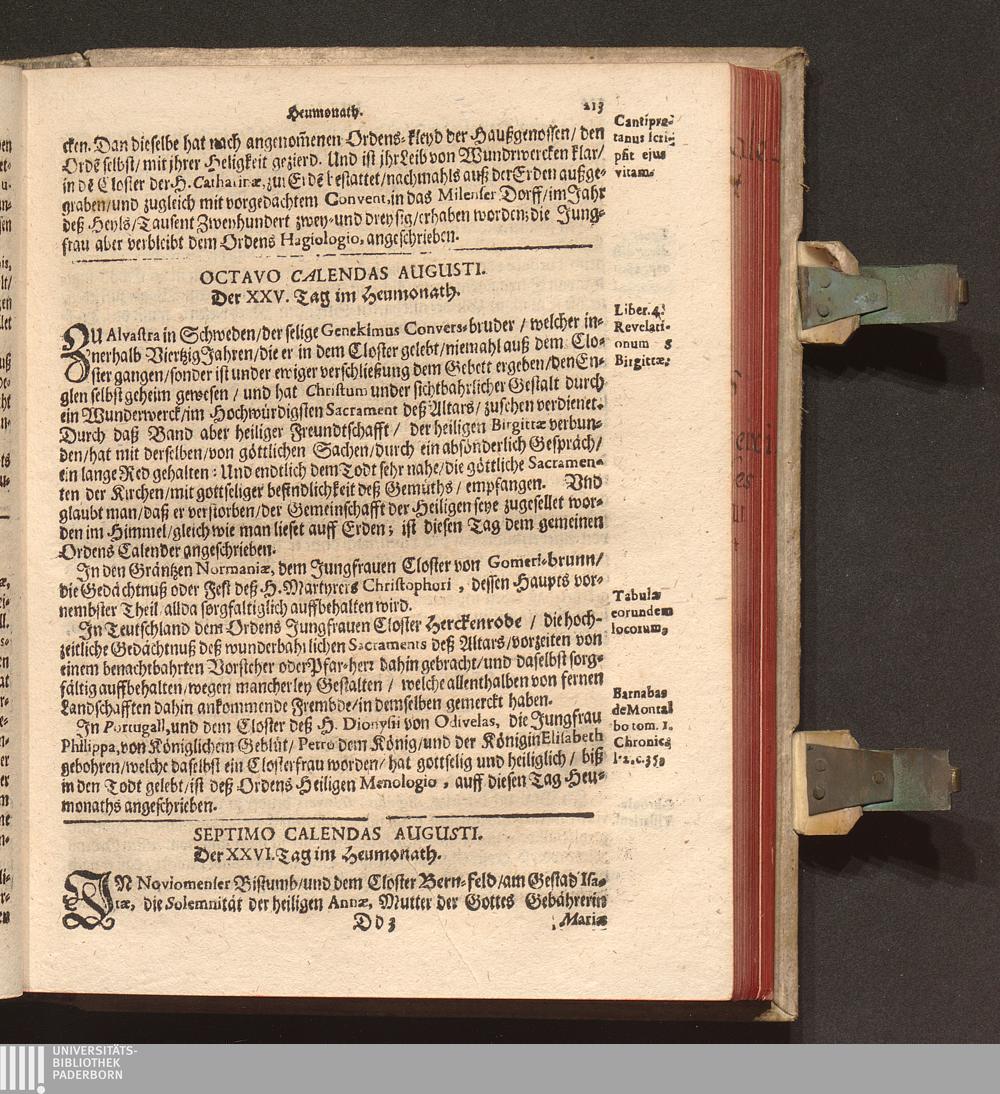 Heumonath. 213
cken. Dan dieselbe hat nach angenom̃enen Ordens-kleyd der Haußgenossen/ den
Ordẽ selbst/ mit jhrer Heligkeit gezierd. Und ist jhr Leib von Wundrwercken klar/
in dẽ Closter der H. Catharinæ, zur Erdẽ bestattet/ nachmahls auß der Erden außge-
graben/ und zugleich mit vorgedachtem Convent, in das Milenser Dorff/ im Jahr
deß Heyls/ Tausent Zweyhundert zwey- und dreysig/ erhaben worden; die Jung-
frau aber verbleibt dem Ordens Hagiologio, angeschrieben.
Cantipra-
tanus scri-
psit ejus
vitam.
OCTAVO CALENDAS AUGUSTI.
Der XXV. Tag im Heumonath.
ZU Alvastra in Schweden/ der selige Genekimus Convers-bruder / welcher in-
nerhalb Viertzig Jahren/ die er in dem Closter gelebt/ niemahl auß dem Clo-
ster gangen/ sonder ist under ewiger verschließung dem Gebett ergeben/ den En-
glen selbst geheim gewesen / und hat Christum under sichtbahrlicher Gestalt durch
ein Wunderwerck/ im Hochwürdigsten Sacrament deß Altars/ zusehen verdienet.
Durch daß Band aber heiliger Freundtschafft / der heiligen Birgittæ verbun-
den/ hat mit derselben/ von göttlichen Sachen/ durch ein absönderlich Gespräch/
ein lange Red gehalten: Und endtlich dem Todt sehr nahe/ die göttliche Sacramen-
ten der Kirchen/ mit gottseliger befindlichkeit deß Gemüths/ empfangen. Und
glaubt man/ daß er verstorben/ der Gemeinschafft der Heiligen seye zugesellet wor-
den im Himmel/ gleich wie man lieset auff Erden; ist diesen Tag dem gemeinen
Ordens Calender angeschrieben.
Liber. 4.
Revelati-
onum S
Birgittæ.
In den Gräntzen Normaniæ, dem Jungfrauen Closter von Gomeri-brunn/
die Gedächtnuß oder Fest deß H. Martyrers Christophori , dessen Haupts vor-
nembster Theil allda sorgfaltiglich auffbehalten wird.
Tabulæ
eorundem
locorum,
In Teutschland dem Ordens Jungfrauen Closter Herckenrode / die hoch-
zeitliche Gedächtnuß deß wunderbahrlichen Sacraments deß Altars/ vorzeiten von
einem benachtbahrten Vorsteher oder Pfar-herr dahin gebracht/ und daselbst sorg-
fältig auffbehalten/ wegen mancherley Gestalten / welche allenthalben von fernen
Landschafften dahin ankommende Frembde/ in demselben gemerckt haben.
In Portugall, und dem Closter deß H. Dionysii von Odivelas, die Jungfrau
Philippa, von Königlichem Geblüt/ Petro dem König/ und der Königin Elisabeth
gebohren/ welche daselbst ein Closterfrau worden/ hat gottselig und heiliglich / biß
in den Todt gelebt/ ist deß Ordens Heiligen Menologio , auff diesen Tag Heu-
monaths angeschrieben.
Barnabas
de Montal
bo tom. 1.
Chronic.
l. 2. c. 35.
SEPTIMO CALENDAS AUGUSTI.
Der XXVI. Tag im Heumonath.
IN Noviomenser Bistumb/ und dem Closter Bern-feld/ am Gestad Isa-
ræ, die Solemnität der heiligen Annæ, Mutter der Gottes Gebährerin
Dd 3 Mariæ
UNIVERSITÄTS-
BIBLIOTHEK
PADERBORN